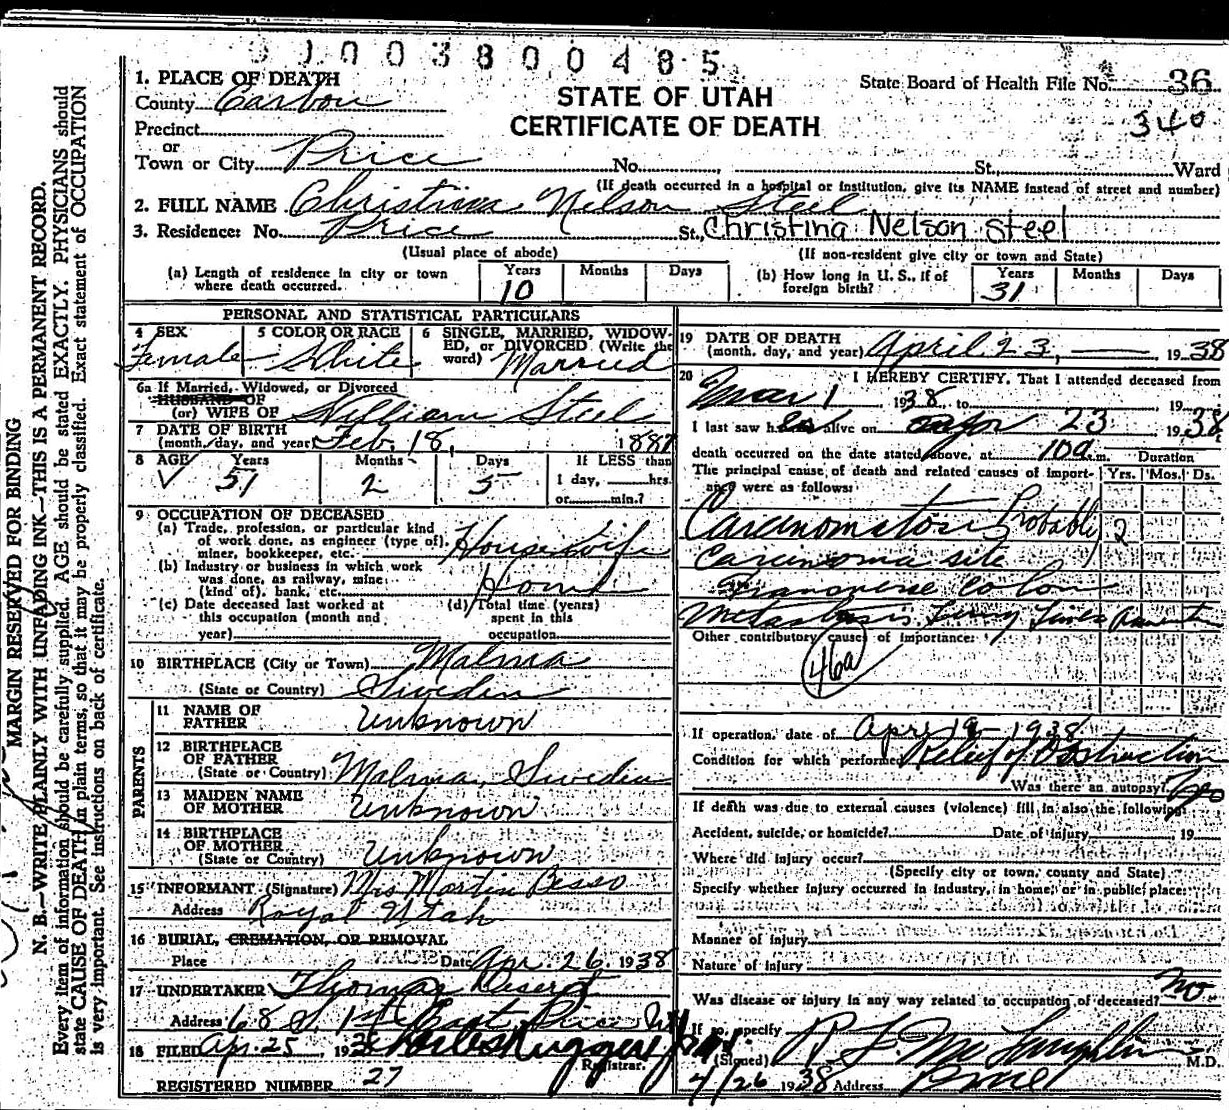 01003800485
1. PLACE OF DEATH
County Carbon
STATE OF UTAH
CERTIFICATE OF DEATH
State Board of Health File No. 36
340
Precinct
or
Town or City Price No. St., Ward
(If death occurred in a hospital or institution, give its NAME instead of street and number)
2. FULL NAME Christina Nelson Steel
3. Residence: No. Price St., Christina Nelson Steel
(Usual place of abode) (If non-resident give city or town and State)
(a) Length of residence in city or town where death occurred. Years 10 Months Days
(b) How long in U. S., if of foreign birth? Years 31 Months Days
PERSONAL AND STATISTICAL PARTICULARS
4 SEX Female
5 COLOR OR RACE White
6 SINGLE, MARRIED, WIDOWED, or DIVORCED (Write the word) Married
6a If Married, Widowed, or Divorced
HUSBAND OF
(or) WIFE OF William Steel
7 DATE OF BIRTH
(month, day, and year) Feb. 18, 1887
8 AGE Years 51 Months 2 Days 5 If LESS than 1 day, hrs. or min.?
9 OCCUPATION OF DECEASED
(a) Trade, profession, or particular kind of work done, as engineer (type of), miner, bookkeeper, etc. Housewife
(b) Industry or business in which work was done, as railway, mine (kind of), bank, etc. Home
(c) Date deceased last worked at this occupation (month and year)
(d) Total time (years) spent in this occupation
10 BIRTHPLACE (City or Town) Malma
(State or Country) Sweden
PARENTS
11 NAME OF FATHER Unknown
12 BIRTHPLACE OF FATHER
(State or Country) Malma, Sweden
13 MAIDEN NAME OF MOTHER Unknown
14 BIRTHPLACE OF MOTHER
(State or Country) Unknown
15 INFORMANT (Signature) Mrs Martin Besso
Address Royal Utah
16 BURIAL, CREMATION, OR REMOVAL
Place Date Apr. 26, 1938
17 UNDERTAKER Thomas
Address 68 S. 1st East Price
18 FILED Apr. 25, 1938
Registrar.
REGISTERED NUMBER 27
19 DATE OF DEATH
(month, day, and year) April 23, 1938
20 I HEREBY CERTIFY, That I attended deceased from
Mar 1, 1938, to 19
I last saw h er alive on 23 1938
death occurred on the date stated above, at 10 a.m. Duration
The principal cause of death and related causes of importance were as follows: Yrs. Mos. Ds.
Carcinomatosis Probably 2
Carcinoma site
Transverse Colon
Metastasis
Other contributory causes of importance:
46a
If operation, date of April 19 1938
Condition for which performed Relief of Obstruction
Was there an autopsy?
If death was due to external causes (violence) fill in also the following:
Accident, suicide, or homicide? Date of injury 19
Where did injury occur?
(Specify city or town, county and State)
Specify whether injury occurred in industry, in home, or in public place:
Manner of injury
Nature of injury
Was disease or injury in any way related to occupation of deceased? no
If so, specify
(Signed) McLaughlin M.D.
4/26 1938 Address Price
MARGIN RESERVED FOR BINDING
N. B.—WRITE PLAINLY WITH UNFADING INK—THIS IS A PERMANENT RECORD.
Every item of information should be carefully supplied. AGE should be stated EXACTLY. PHYSICIANS should
state CAUSE OF DEATH in plain terms, so that it may be properly classified. Exact statement of OCCUPATION
is very important. See instructions on back of certificate.